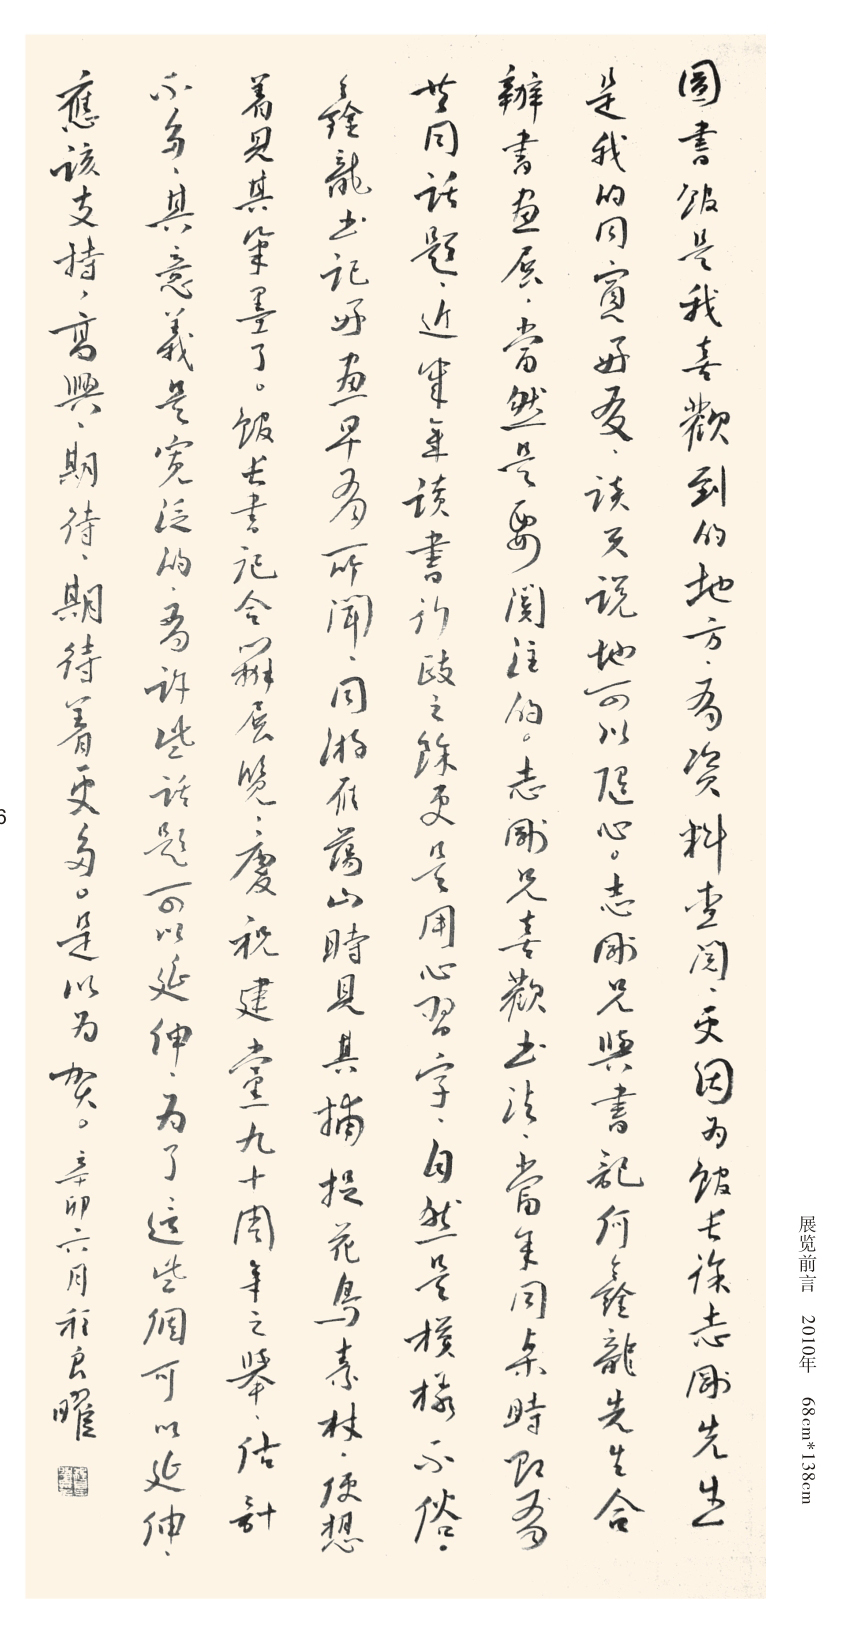 圖書館是我喜歡到的地方、有资料查閱、更因为館长徐志剛先生
是我的同窗好友、谈天说地可以隨心。志剛兄與書記何鑫龍先生合
辦書画展、當然是要関注的。志剛兄喜歡书法、當年同桌時即有
共同话题、近幾年读書行政之餘更是用心習字、自然是模樣不俗。
鑫龍书记好画早有所聞、同游雁蕩山時見其捕捉花鳥素材、便想
着見其筆墨了。館长書记合辦展覽、慶祝建黨九十周年之舉、估計
不多、其意義是宽泛的、有许些话题可以延伸、为了這些個可以延伸、
應該支持、高興、期待、期待着更多。是以为贺。辛卯六月程良曜
展览前言 2010年 68cm*138cm
6